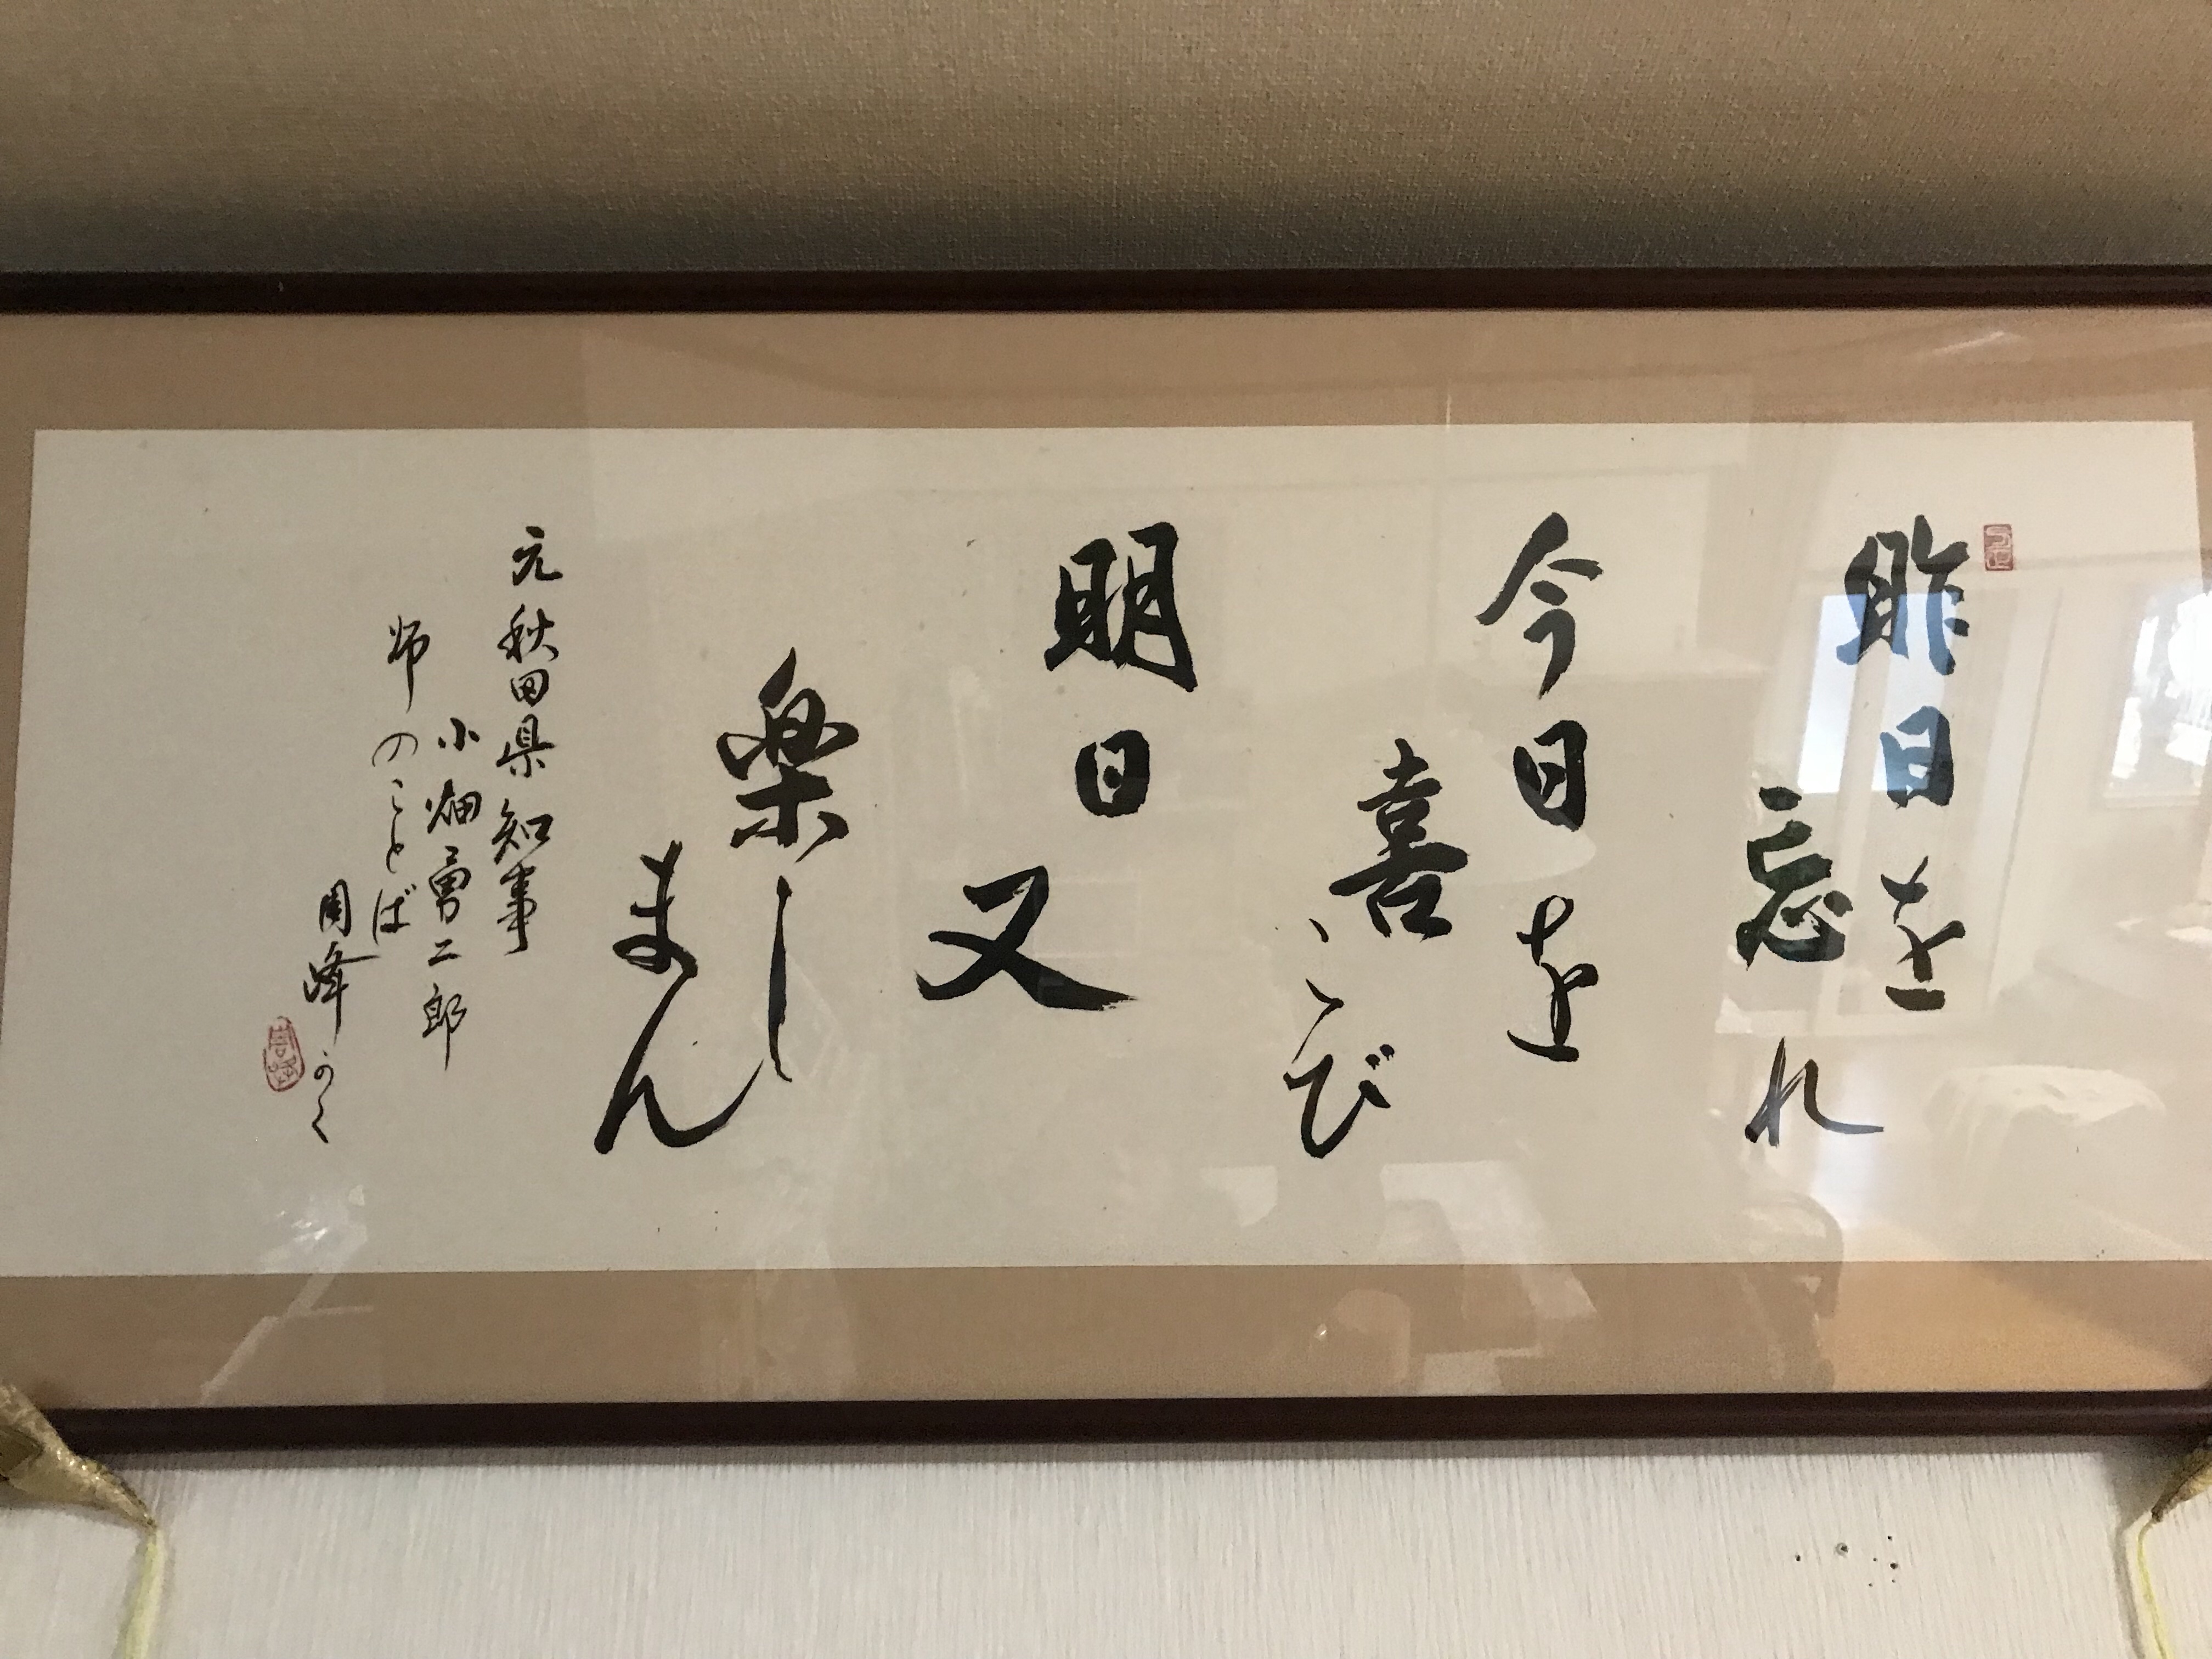 昨日を
忘れ
今日を
喜こび
明日又
楽し
まん
元秋田県知事
小畑勇二郎
師のことば
周峰かく